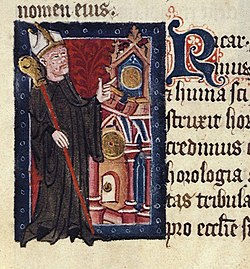 nomen eius.
Ricar
nimus
t huma sci
struxit hor
credimus e
horologia
tas tribula
pro eccle